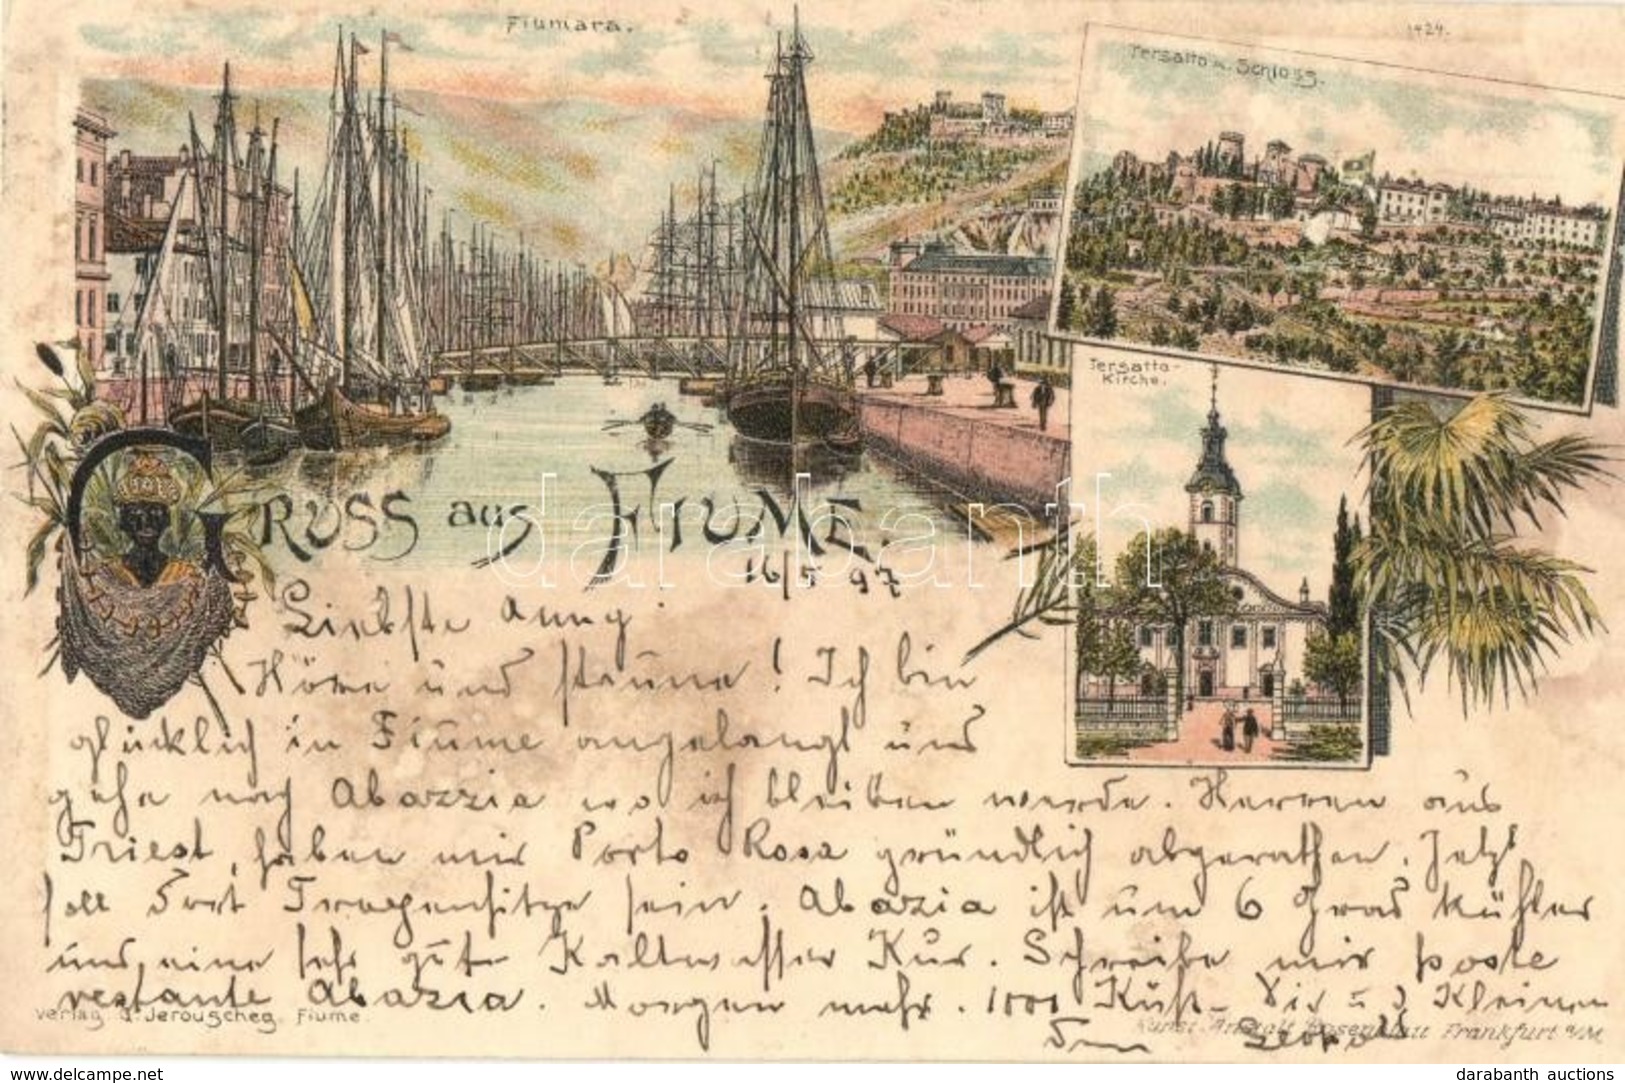 Fiumara.
1424.
Tersatto m. Schloss.
Tersatto-
Kirche.
GRUSS aus FIUME.
darabanth
16/5 97
Liebste Anny!
Höre und staune! Ich bin
glücklich in Fiume angelangt und
gehe nach Abazzia wo ich bleiben werde. Herren aus
Triest, haben mir Porto Rosa gründlich abgerathen. Jetzt
soll dort Tropenhitze sein. Abazia ist um 6 Grad kühler
und eine sehr gute Kaltwasser Kur. Schreibe mir poste
restante Abazia. Morgen mehr. 1000 Küsse Dir u. d. Kleinen
Dein Leop
Verlag G. Jerouscheg Fiume.
Kunst-Anstalt Rosenblatt Frankfurt a/M
delcampe.net
darabanth auctions